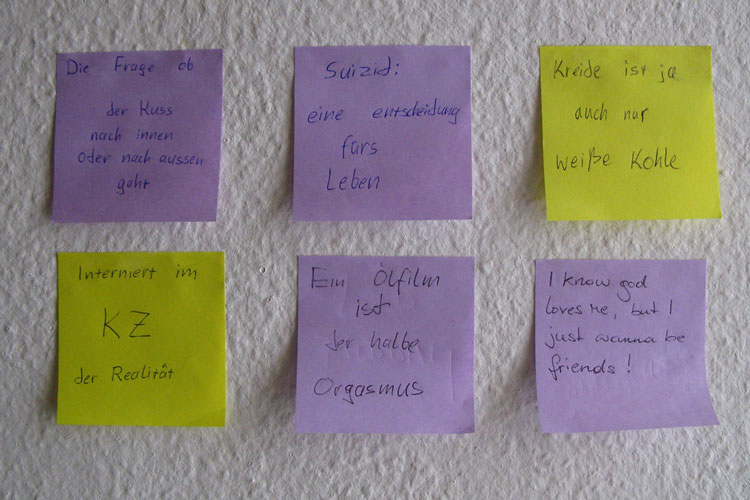 Die Frage ob
der Kuss
nach innen
oder nach aussen
geht
Suizid:
eine entscheidung
fürs
Leben
Kreide ist ja
auch nur
weiße Kohle
Interniert im
KZ
der Realität
Ein Ölfilm
ist
der halbe
Orgasmus
I know god
loves me, but I
just wanna be
friends!